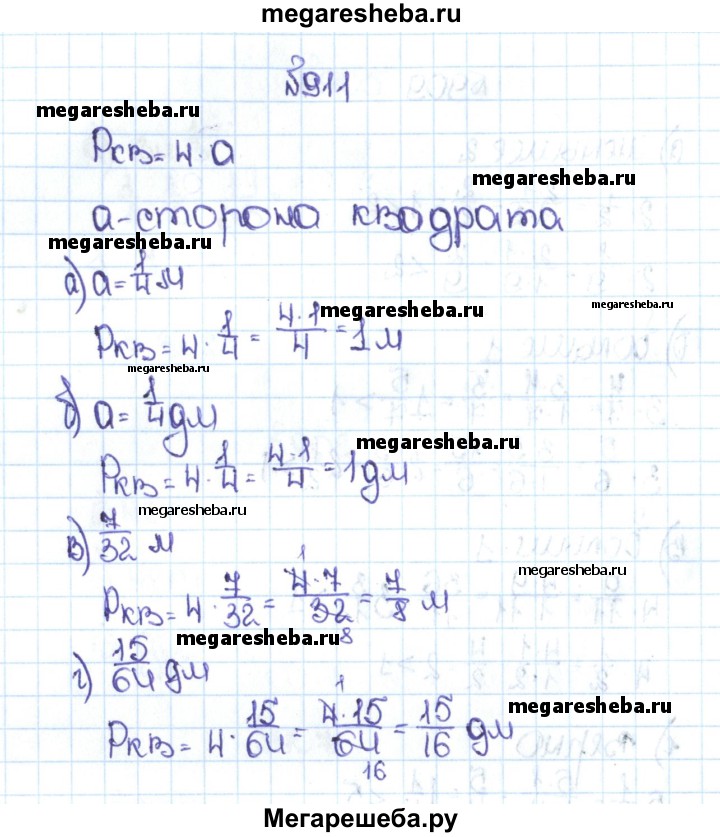 megaresheba.ru
№911
megaresheba.ru
Pкв = 4 · a
megaresheba.ru
a - сторона квадрата
megaresheba.ru
а) a = 1/4 м
megaresheba.ru
megaresheba.ru
Pкв = 4 · 1/4 = 4·1/4 = 1 м
megaresheba.ru
б) a = 1/4 дм
megaresheba.ru
Pкв = 4 · 1/4 = 4·1/4 = 1 дм
megaresheba.ru
в) 7/32 м
megaresheba.ru
1
Pкв = 4 · 7/32 = 4·7/32 = 7/8 м
8
megaresheba.ru
г) 15/64 дм
1
megaresheba.ru
Pкв = 4 · 15/64 = 4·15/64 = 15/16 дм
16
Мегарешеба.ру